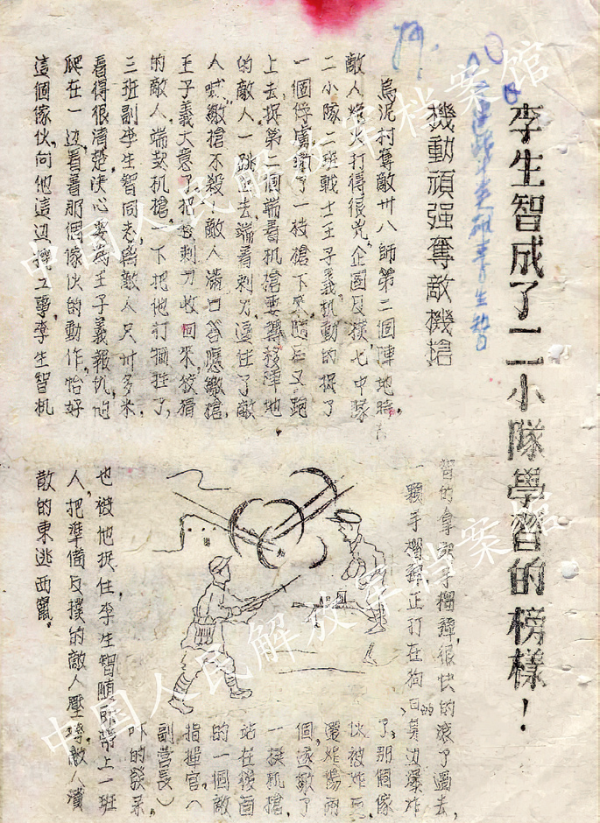 李生智成了二小隊學習的榜樣！
機動頑强奪敵機搶
烏泥村奪敵卅八師第二個陣地時，
敵人炮火打得很兇，企圖反撲，七中隊
二小隊二班戰士王子義机動的捉了
一個俘虜繳了一枝搶下來，隨后又跑
上去捉第二個端着机搶要轉移陣地
的敵人一跳上去端着刺刀逼住了敵
人喊「繳搶不殺」敵人滿口答應繳搶，
王子義大意了把刺刀收回來狡猾
的敵人端契机搶，一下把他打犧牲了，
三班副李生智同志离敵人只卅多米，
看得很清楚，决心要為王子義報仇，他
爬在一边，看着那個傢伙的動作，恰好
這個傢伙，向他這边工事，李生智机
智的拿手榴彈，很快的滚了過去，
一顆手榴弹正打在狗日的身边爆炸
了，那個傢
伙被炸死
還炸傷兩
個，逐敵了
一挺机搶，
站在後面
的一個敵
指揮官（
副營長）
吓的發呆
也被他捉住，李生智随即帶上一班
人，把準備反撲的敵人壓垮，敵人潰
散的東逃西竄。
中国人民解放军档案馆
中国人民解放军档案馆